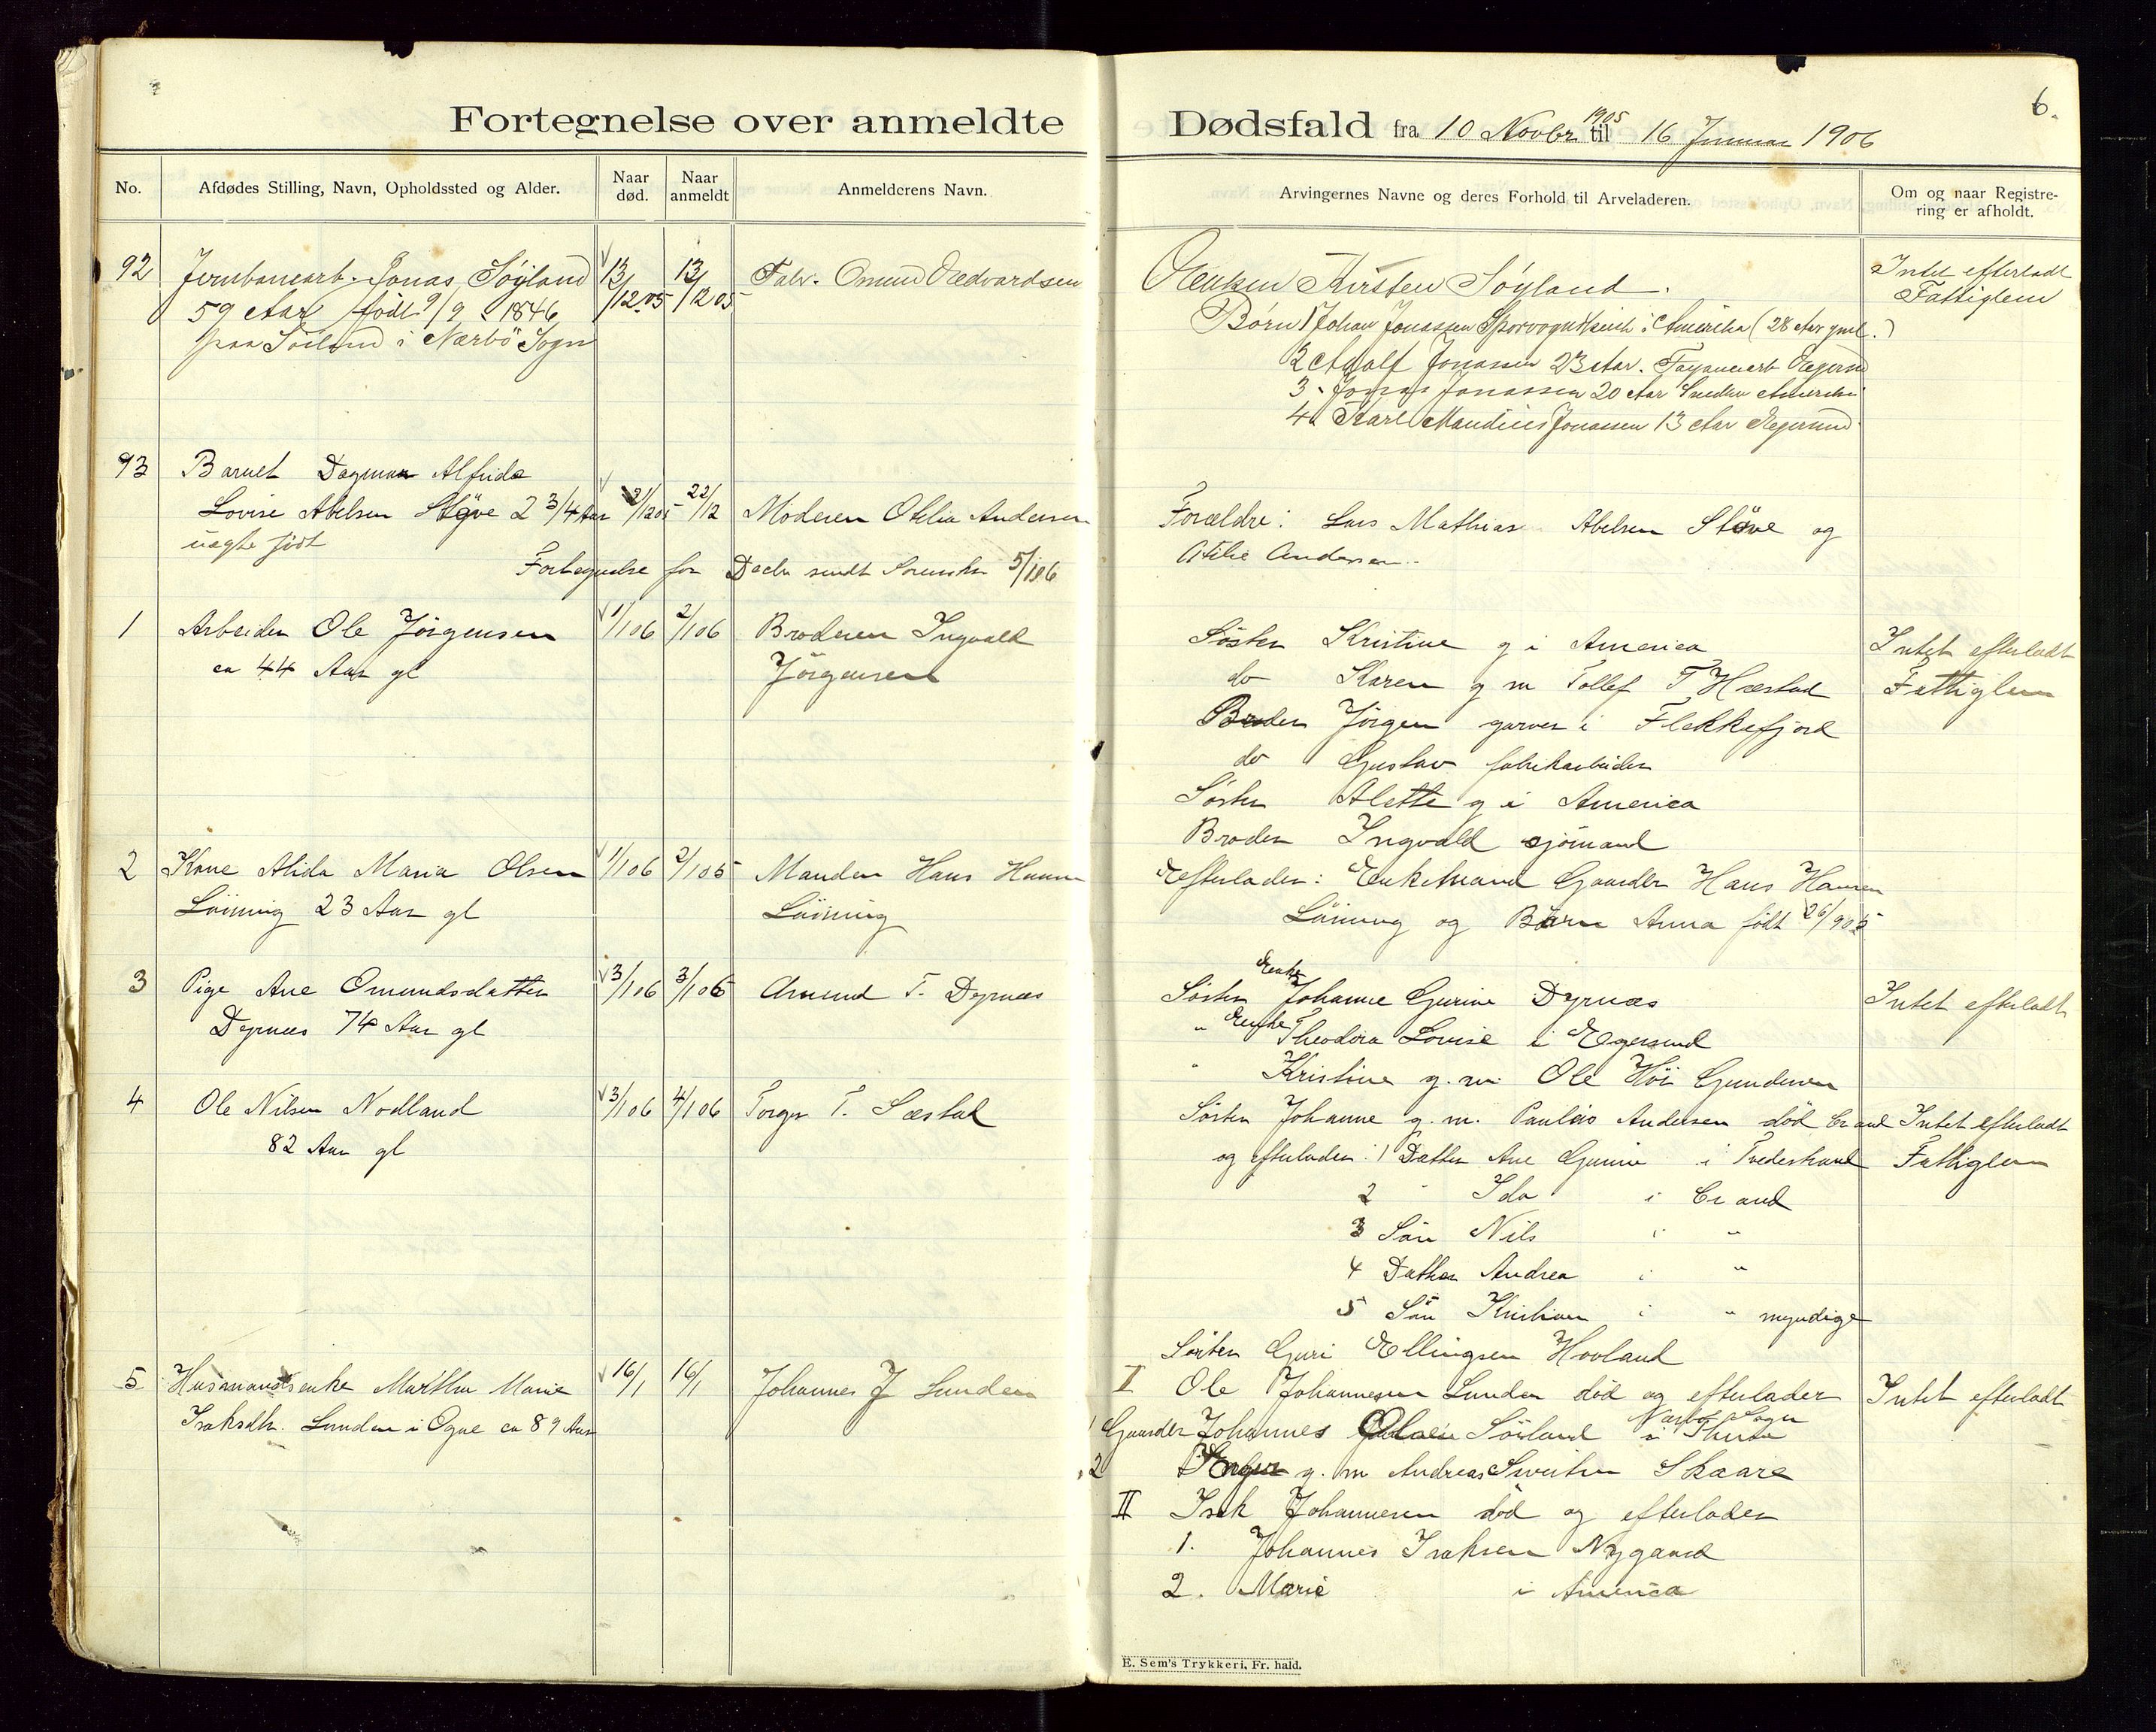 Fortegnelse over anmeldte
No.
Afdødes Stilling, Navn, Opholdssted og Alder.
Naar død.
Naar anmeldt
Anmelderens Navn.
92 Jernbanearb. Jonas Søyland 13/12 05 13/12 05 Omund Edvardsen
59 Aar født 9/9 1846
paa Söiland i Nærbö Sogn
93 Barnet Dagmar Alfride
Lovise Abelsen Støve 2 3/4 Aar 21/12 05 22/12 Moderen Otelia Andersen
uægte født
Fortegnelse for Decbr sendt Sorenskr 5/1 06
1 Arbeider Ole Jörgensen 1/1 06 2/1 06 Broderen Ingvald
ca 44 Aar gl Jörgensen
2 Kone Alida Maria Olsen 1/1 06 2/1 05 Manden Hans Hansen
Löining 23 Aar gl Löining
3 Pige Ane Omundsdatter 3/1 06 3/1 06 Omund T. Dyrnæs
Dyrnæs 74 Aar gl
4 Ole Nilsen Nodland 3/1 06 4/1 06 Torger T. Sæstad
82 Aar gl
5 Husmandsenke Martha Marie 16/1 16/1 Johannes J Lunden
Isaksdtr. Lunden i Ogne ca 89 Aar
6.
Dødsfald fra 10 Novbr 1905 til 16 Januar 1906
Arvingernes Navne og deres Forhold til Arveladeren.
Om og naar Registrering er afholdt.
Enken Kirsten Söyland. Intet efterladt
Fattiglem
Børn 1 Johan Jonassen i Amerika (28 Aar gml.)
2 Adolf Jonassen 23 Aar. Egersund
3. Jonas Jonassen 20 Aar Snedker Amerika
4. Karl Maudius Jonassen 13 Aar Egersund
Forældre: Lars Mathias Abelsen Støve og
Otilie Andersen.
Söster Kristine g i America Intet efterladt
do Karen g m Tollef T. Hæstad Fattiglem
Broder Jörgen garver i Flekkefjord
do Gustav fabrikarbeider
Söster Alette g i America
Broder Ingvald sjömand
Efterlader: Enkemand Gaardbr Hans Hansen
Löining og Barn Anna født 26/9 05
Söster Enke Johanne Gurine Dyrnæs Intet efterladt
" Enke Theodora Lovise i Egersund
" Kristine g.m. Ole Höi Gundersen
Söster Johanne g.m. Paulus Andersen död Cr.and Intet efterladt
og efterlader: 1 Datter Ane Gurine i Tvedestrand Fattiglem
2 " Ida i Cr and
3 Sön Nils i "
4 Datter Andrea i "
5 Sön Kristian i " myndige
Söster Guri Ellingsen Hovland
I Ole Johannesen Lunden död og efterlader Intet efterladt
1 Gaardbr Johannes Olsen Söiland Nærbö Sogn
2 Inger g. m Andreas Sivertsen Skaare
II Isak Johannesen död og efterlader
1. Johannes Isaksen Nygaard
2. Marie i America
E. Sem's Trykkeri, Fr. hald.